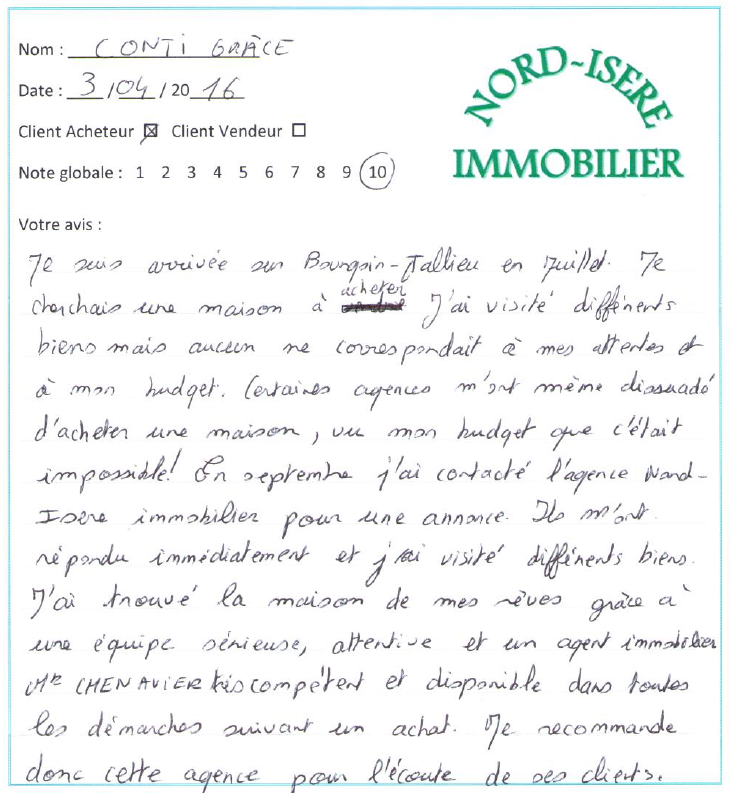 Nom : CONTI GRÂCE
Date : 3 /04 / 20 16
Client Acheteur ☒ Client Vendeur ☐
Note globale : 1 2 3 4 5 6 7 8 9 10
NORD-ISERE
IMMOBILIER
Votre avis :
Je suis arrivée sur Bourgoin-Jallieu en Juillet. Je
cherchais une maison à acheter J'ai visité différents
biens mais aucun ne correspondait à mes attentes et
à mon budget. Certaines agences m'ont même dissuadé
d'acheter une maison, vu mon budget que c'était
impossible! En septembre j'ai contacté l'agence Nord-
Isère immobilier pour une annonce. Ils m'ont
répondu immédiatement et j'ai visité différents biens.
J'ai trouvé la maison de mes rêves grâce à
une équipe sérieuse, attentive et un agent immobilier
Mr CHENAVIER très compétent et disponible dans toutes
les démarches suivant un achat. Je recommande
donc cette agence pour l'écoute de ses clients.